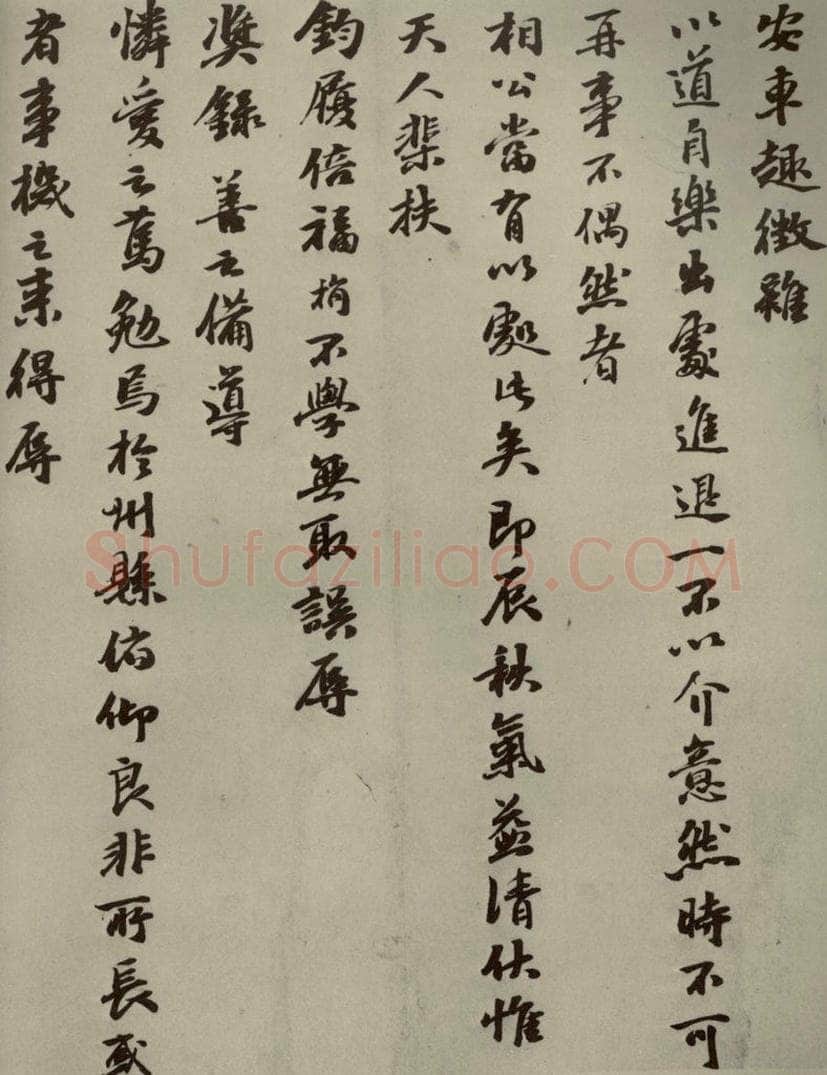 安車趣徵雖
以道自樂出處進退一不以介意然時不可
再事不偶然者
相公當有以處此矣即辰秋氣益清伏惟
天人棐扶
鈞履倍福不學無取誤辱
奬錄善之備導
憐愛之篤勉焉於州縣俯仰良非所長或
者事機之来得辱
Shufaziliao.COM